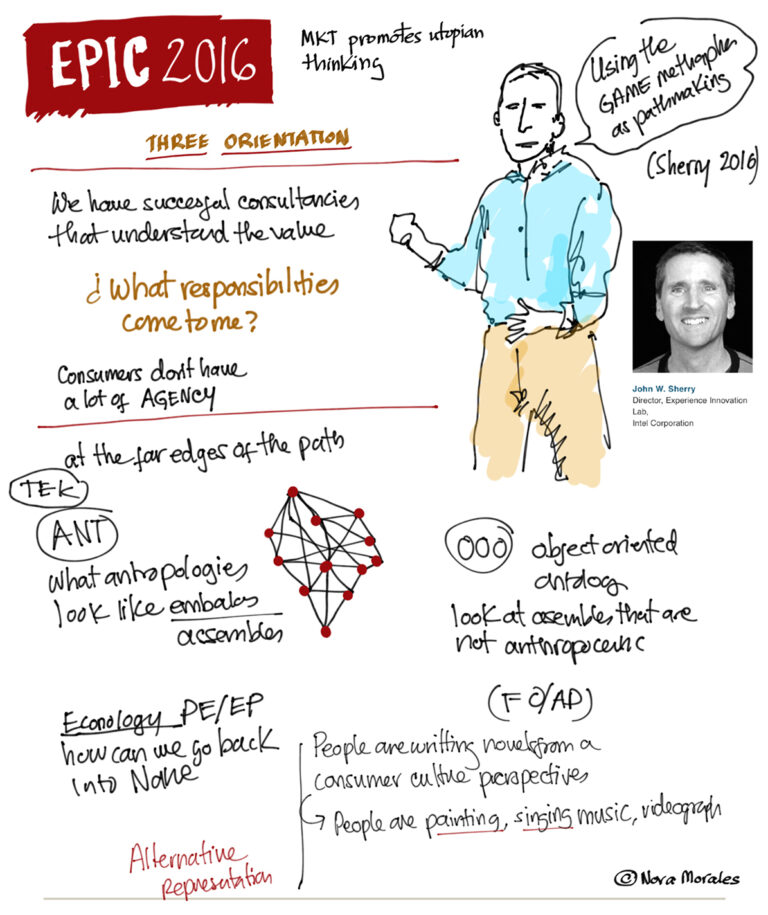 EPIC 2016
MKT promotes utopian
thinking
Using the
GAME methapher
as pathmaking
(Sherry 2016)
THREE ORIENTATION
We have succesful consultancies
that understand the value
¿What responsibilities
come to me?
Consumers don't have
a lot of AGENCY
John W. Sherry
Director, Experience Innovation
Lab,
Intel Corporation
at the far edges of the path
TEK
ANT
what antropologies
look like embalas
assembles
OOO object oriented
antolog
look at asembles that are
not anthropocenic
Econology PE/EP
how can we go back
into None
(FO/AD)
People are writting novels from a
consumer cultue perspectives
People are painting, singing music, videograph
Alternative
Representation
© Nora Morales